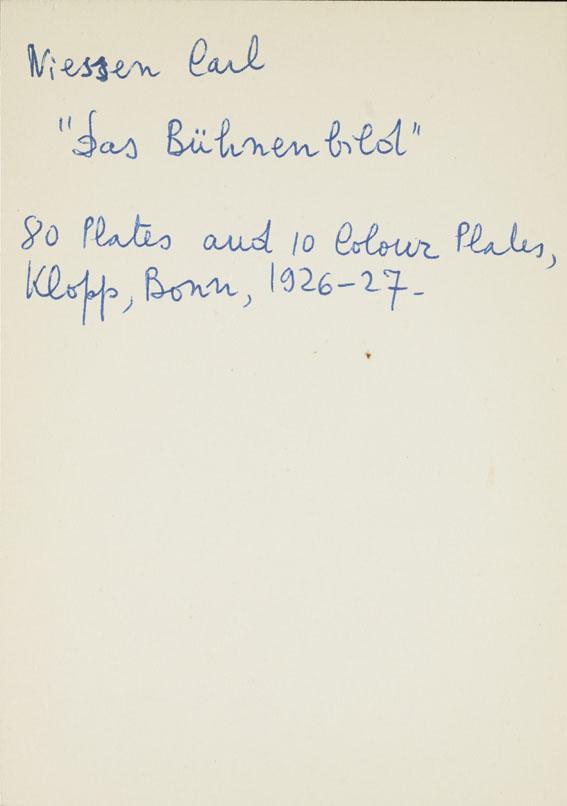 Niessen Carl
"Das Bühnenbild"
80 Plates and 10 Colour Plates,
Klopp, Bonn, 1926-27.-